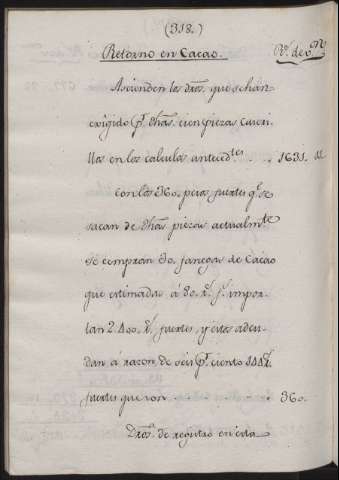 (318.)
Retorno en Cacao. R.^s de v.^n
Ascienden los dros. que se han
exigido p.^r dhas. cien piezas Cucri-
llas en los calculos anteced.^tes . . 1631.
con los 360. pesos fuertes q.^e se
sacan de dhas. piezas actualm.^te
se compran 30. fanegas de Cacao
que estimadas á 80. r.^s f.^s impor-
tan 2.400. r.^s fuertes y estos adeu-
dan á razon de seis p.^r ciento 144 r.^s
fuertes que son . . . 360.
Dros. de registro en esta